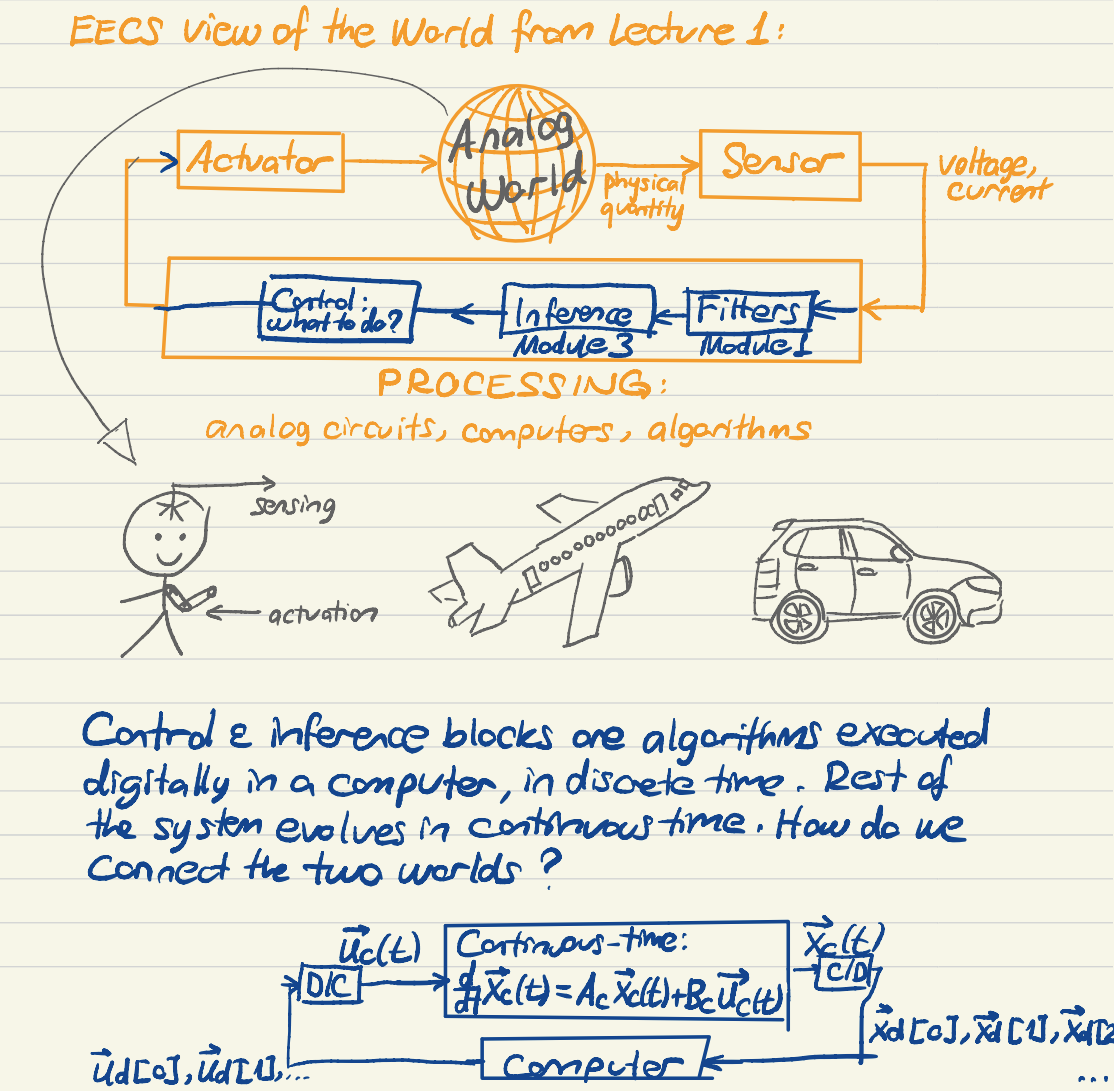 EECS view of the World from Lecture 1:
Actuator
Analog
World
physical
quantity
Sensor
voltage,
current
Control:
what to do?
Inference
Module 3
Filters
Module 1
PROCESSING:
analog circuits, computers, algorithms
sensing
actuation
Control & inference blocks are algorithms executed
digitally in a computer, in discrete time. Rest of
the system evolves in continuous time. How do we
connect the two worlds?
D/C
u⃗c(t)
Continuous-time:
d/dt x⃗c(t) = Ac x⃗c(t) + Bc u⃗c(t)
x⃗c(t)
C/D
x⃗d[0], x⃗d[1], x⃗d[2
...
Computer
u⃗d[0], u⃗d[1], ...